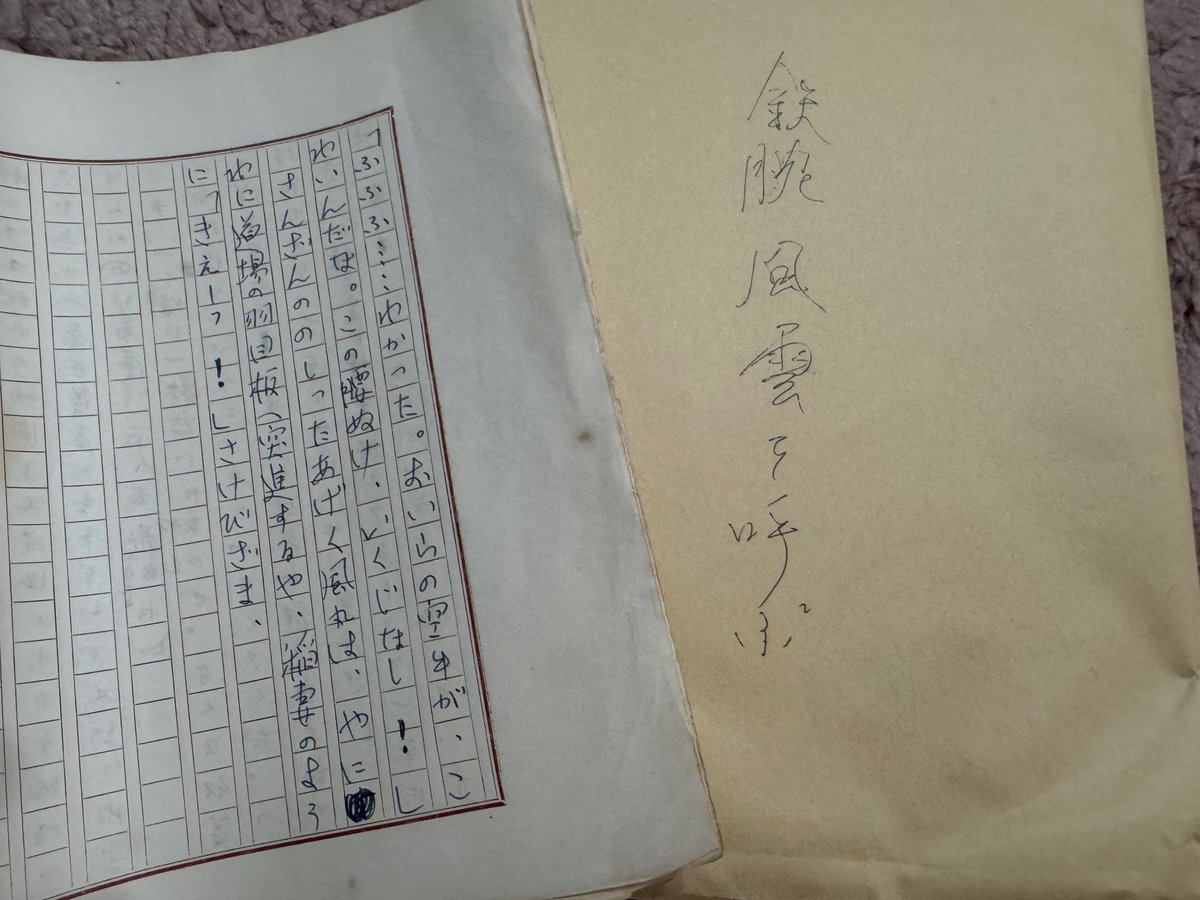 鉄腕風雲を呼ぶ
「ふふふ……わかった。おいらの空手が、こ
わいんだな。この腰ぬけ、いくじなし!」
さんざんののしったあげく風丸は、やに
わに道場の羽目板へ突進するや、稲妻のよう
に「きえーっ!」さけびざま、